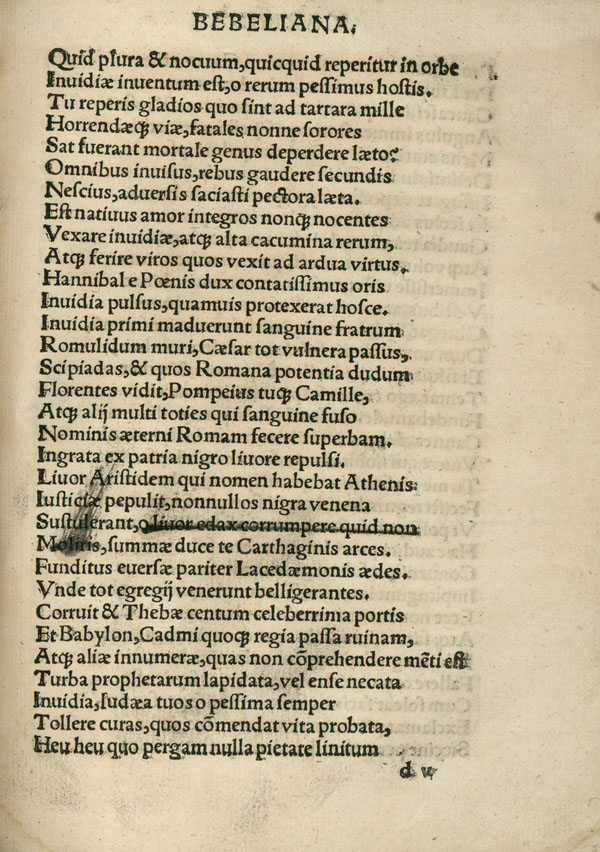 BEBELIANA.
Quid plura & nocuum, quicquid reperitur in orbe
Inuidiæ inuentum est, o rerum pessimus hostis.
Tu reperis gladios quo sint ad tartara mille
Horrendæqȝ viæ, fatales nonne sorores
Sat fuerant mortale genus deperdere læto?
Omnibus inuisus, rebus gaudere secundis
Nescius, aduersis saciasti pectora læta.
Est natiuus amor integros nonqȝ nocentes
Vexare inuidiæ, atqȝ alta cacumina rerum,
Atqȝ ferire viros quos vexit ad ardua virtus.
Hannibal e Pœnis dux contatissimus oris
Inuidia pulsus, quamuis protexerat hosce.
Inuidia primi maduerunt sanguine fratrum
Romulidum muri, Cæsar tot vulnera passus,
Scipiadas, & quos Romana potentia dudum
Florentes vidit, Pompeius tuqȝ Camille,
Atqȝ alij multi toties qui sanguine fuso
Nominis æterni Romam fecere superbam.
Ingrata ex patria nigro liuore repulsi.
Liuor Aristidem qui nomen habebat Athenis
Iusticiæ pepulit, nonnullos nigra venena
Sustulerant, o liuor edax corrumpere quid non
Moliris, summæ duce te Carthaginis arces.
Funditus euersæ pariter Lacedæmonis ædes.
Vnde tot egregij venerunt belligerantes.
Corruit & Thebæ centum celeberrima portis
Et Babylon, Cadmi quoqȝ regia passa ruinam,
Atqȝ aliæ innumeræ, quas non cõprehendere mẽti est
Turba prophetarum lapidata, vel ense necata
Inuidia, Iudæa tuos o pessima semper
Tollere curas, quos cõmendat vita probata,
Heu heu quo pergam nulla pietate linitum
d v